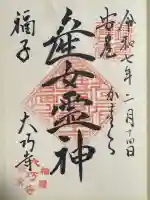 令和七年二月十四日
安産
かまくら
産女霊神
福子
大巧寺